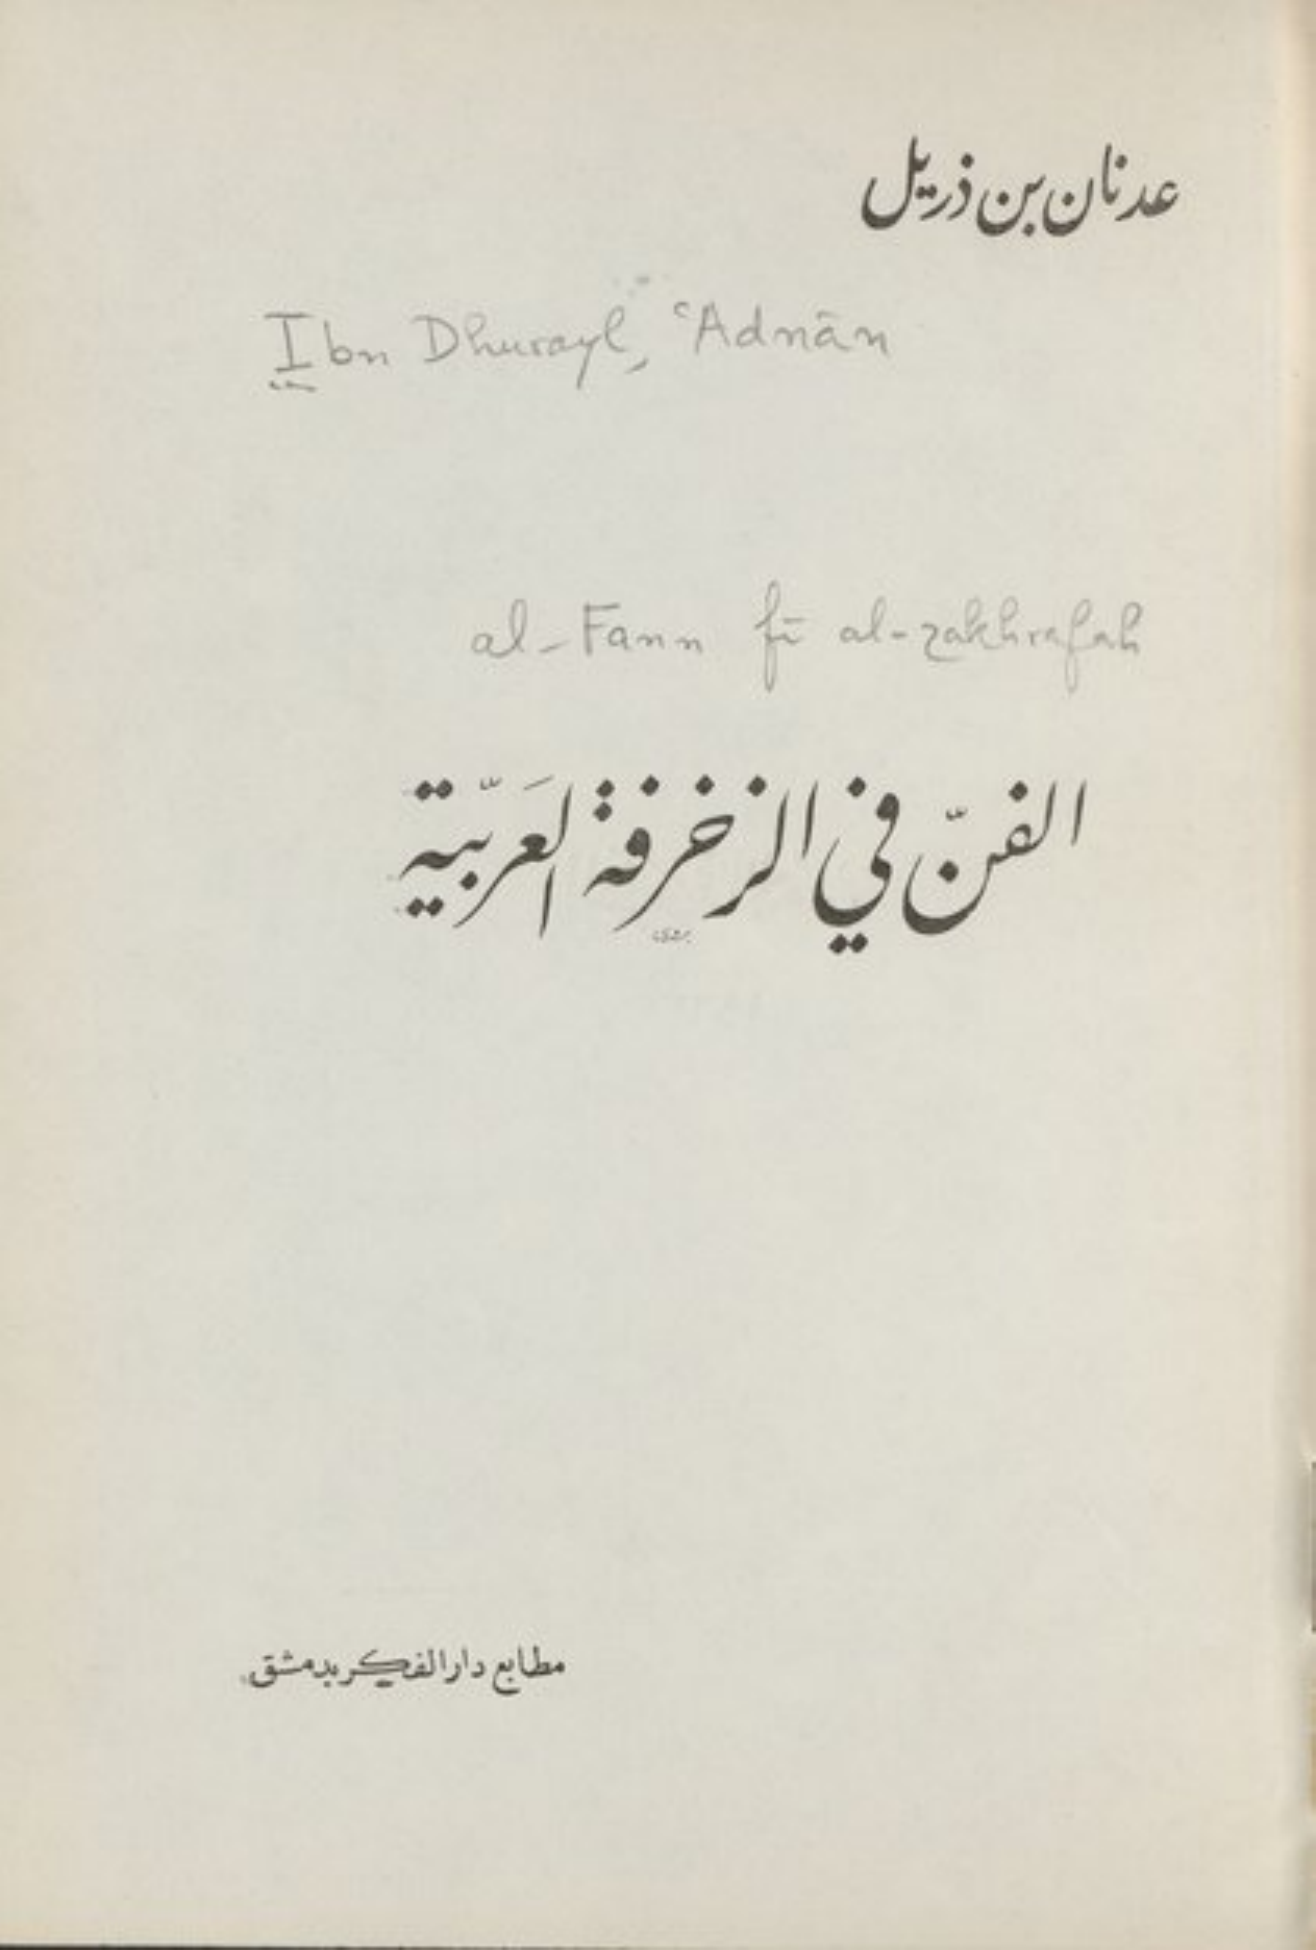 عدنان بن ذريل
Ibn Dhurayl, ʿAdnān
al-Fann fī al-zakhrafah
الفنّ في الزخرفة العَربيّة
مطابع دار الفكر بدمشق